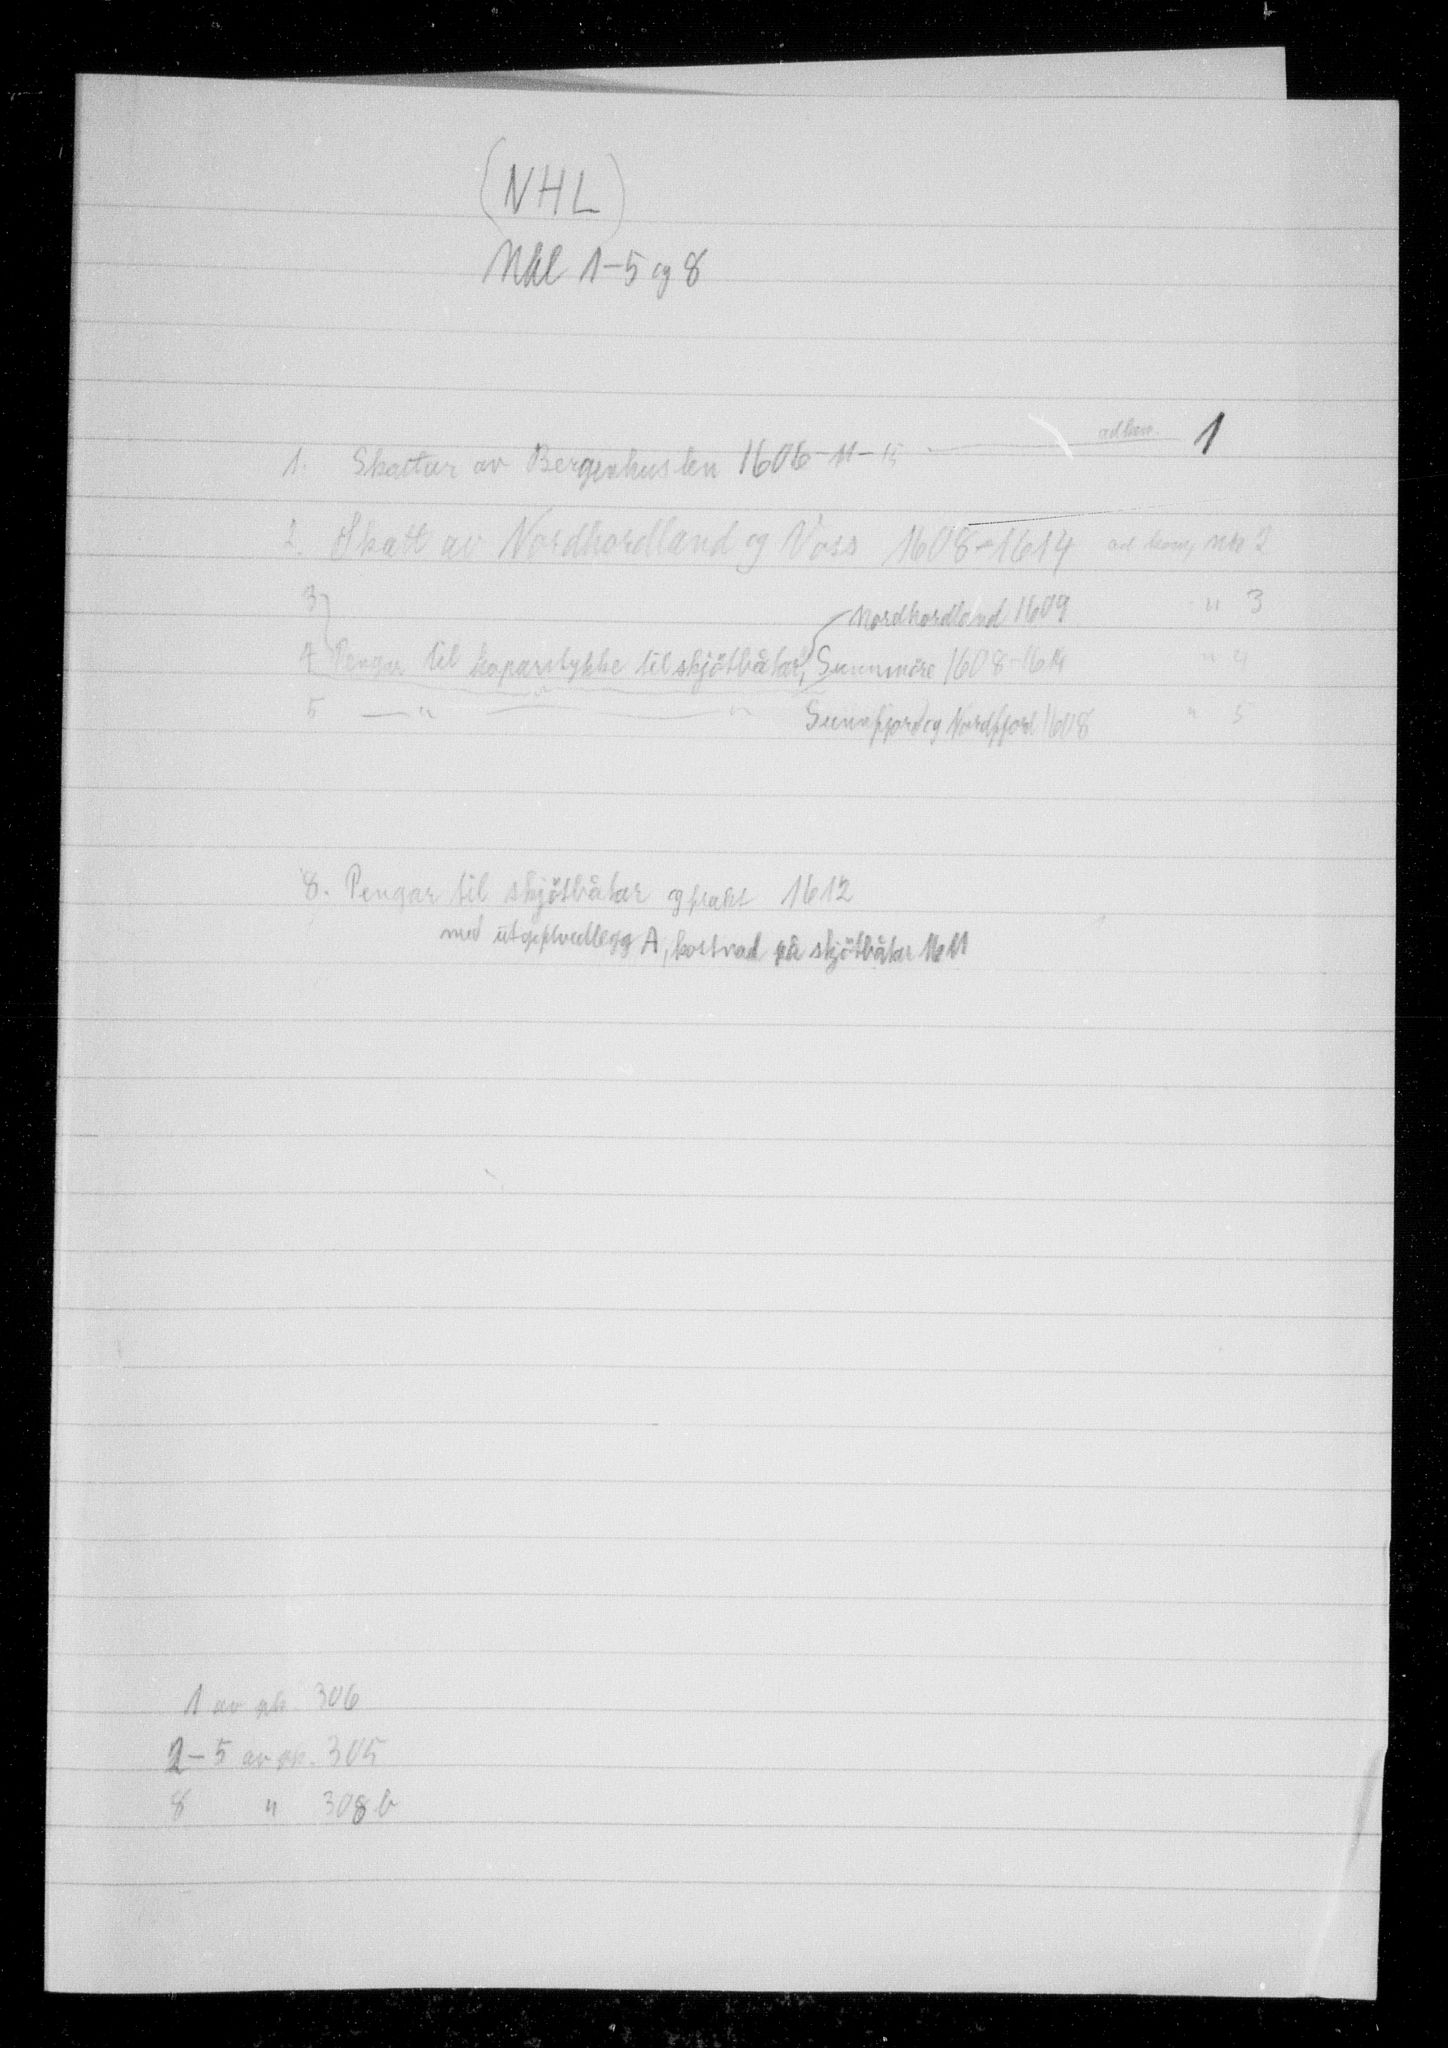 (NHL)
Nhl 1-5 og 8
1. Skattar av Bergenhus len 1606-11-15 1
2. Skatt av Nordhordland og Voss 1608-1614 2
3 Nordhordland 1609 " 3
4 Pengar til koparstykke til skjötbåtar, Sunnmöre 1608-1614 " 4
5 — " — " Sunnfjord og Nordfjord 1608 " 5
8. Pengar til skjötbåtar og frakt 1612
med utgiftvedlegg A, kostnad på skjötbåtar 1611
1 av pk. 306
2-5 av pk. 305
8 " 308 b